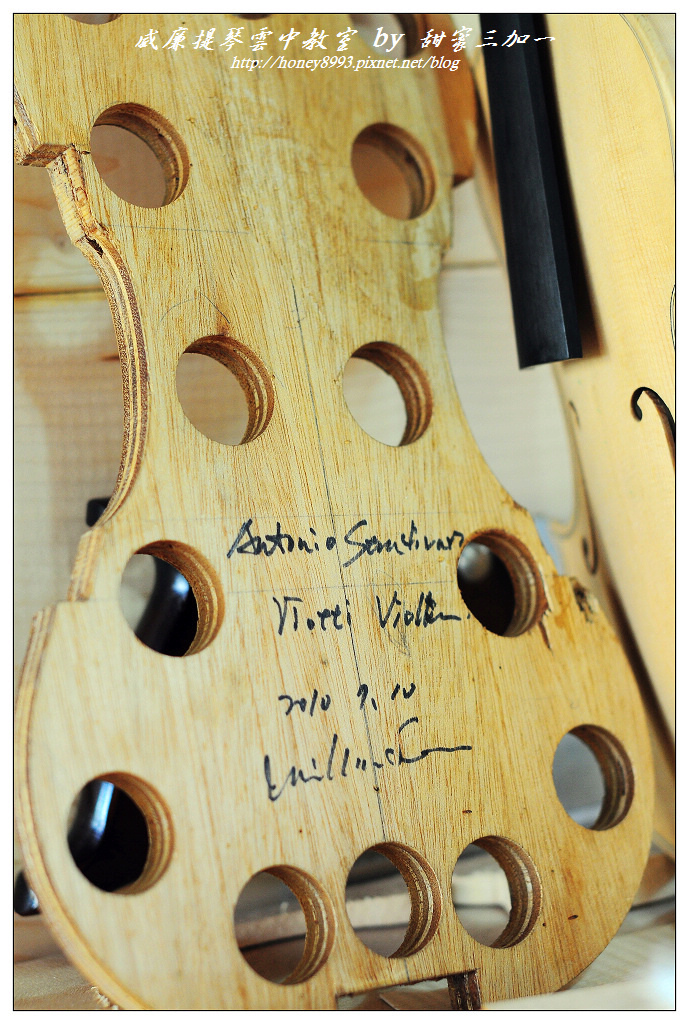 威廉提琴雲中教室 by 甜蜜三加一
http://honey8993.pixnet.net/blog
Antonio
Viotti Violin.
2010 9. 10
William